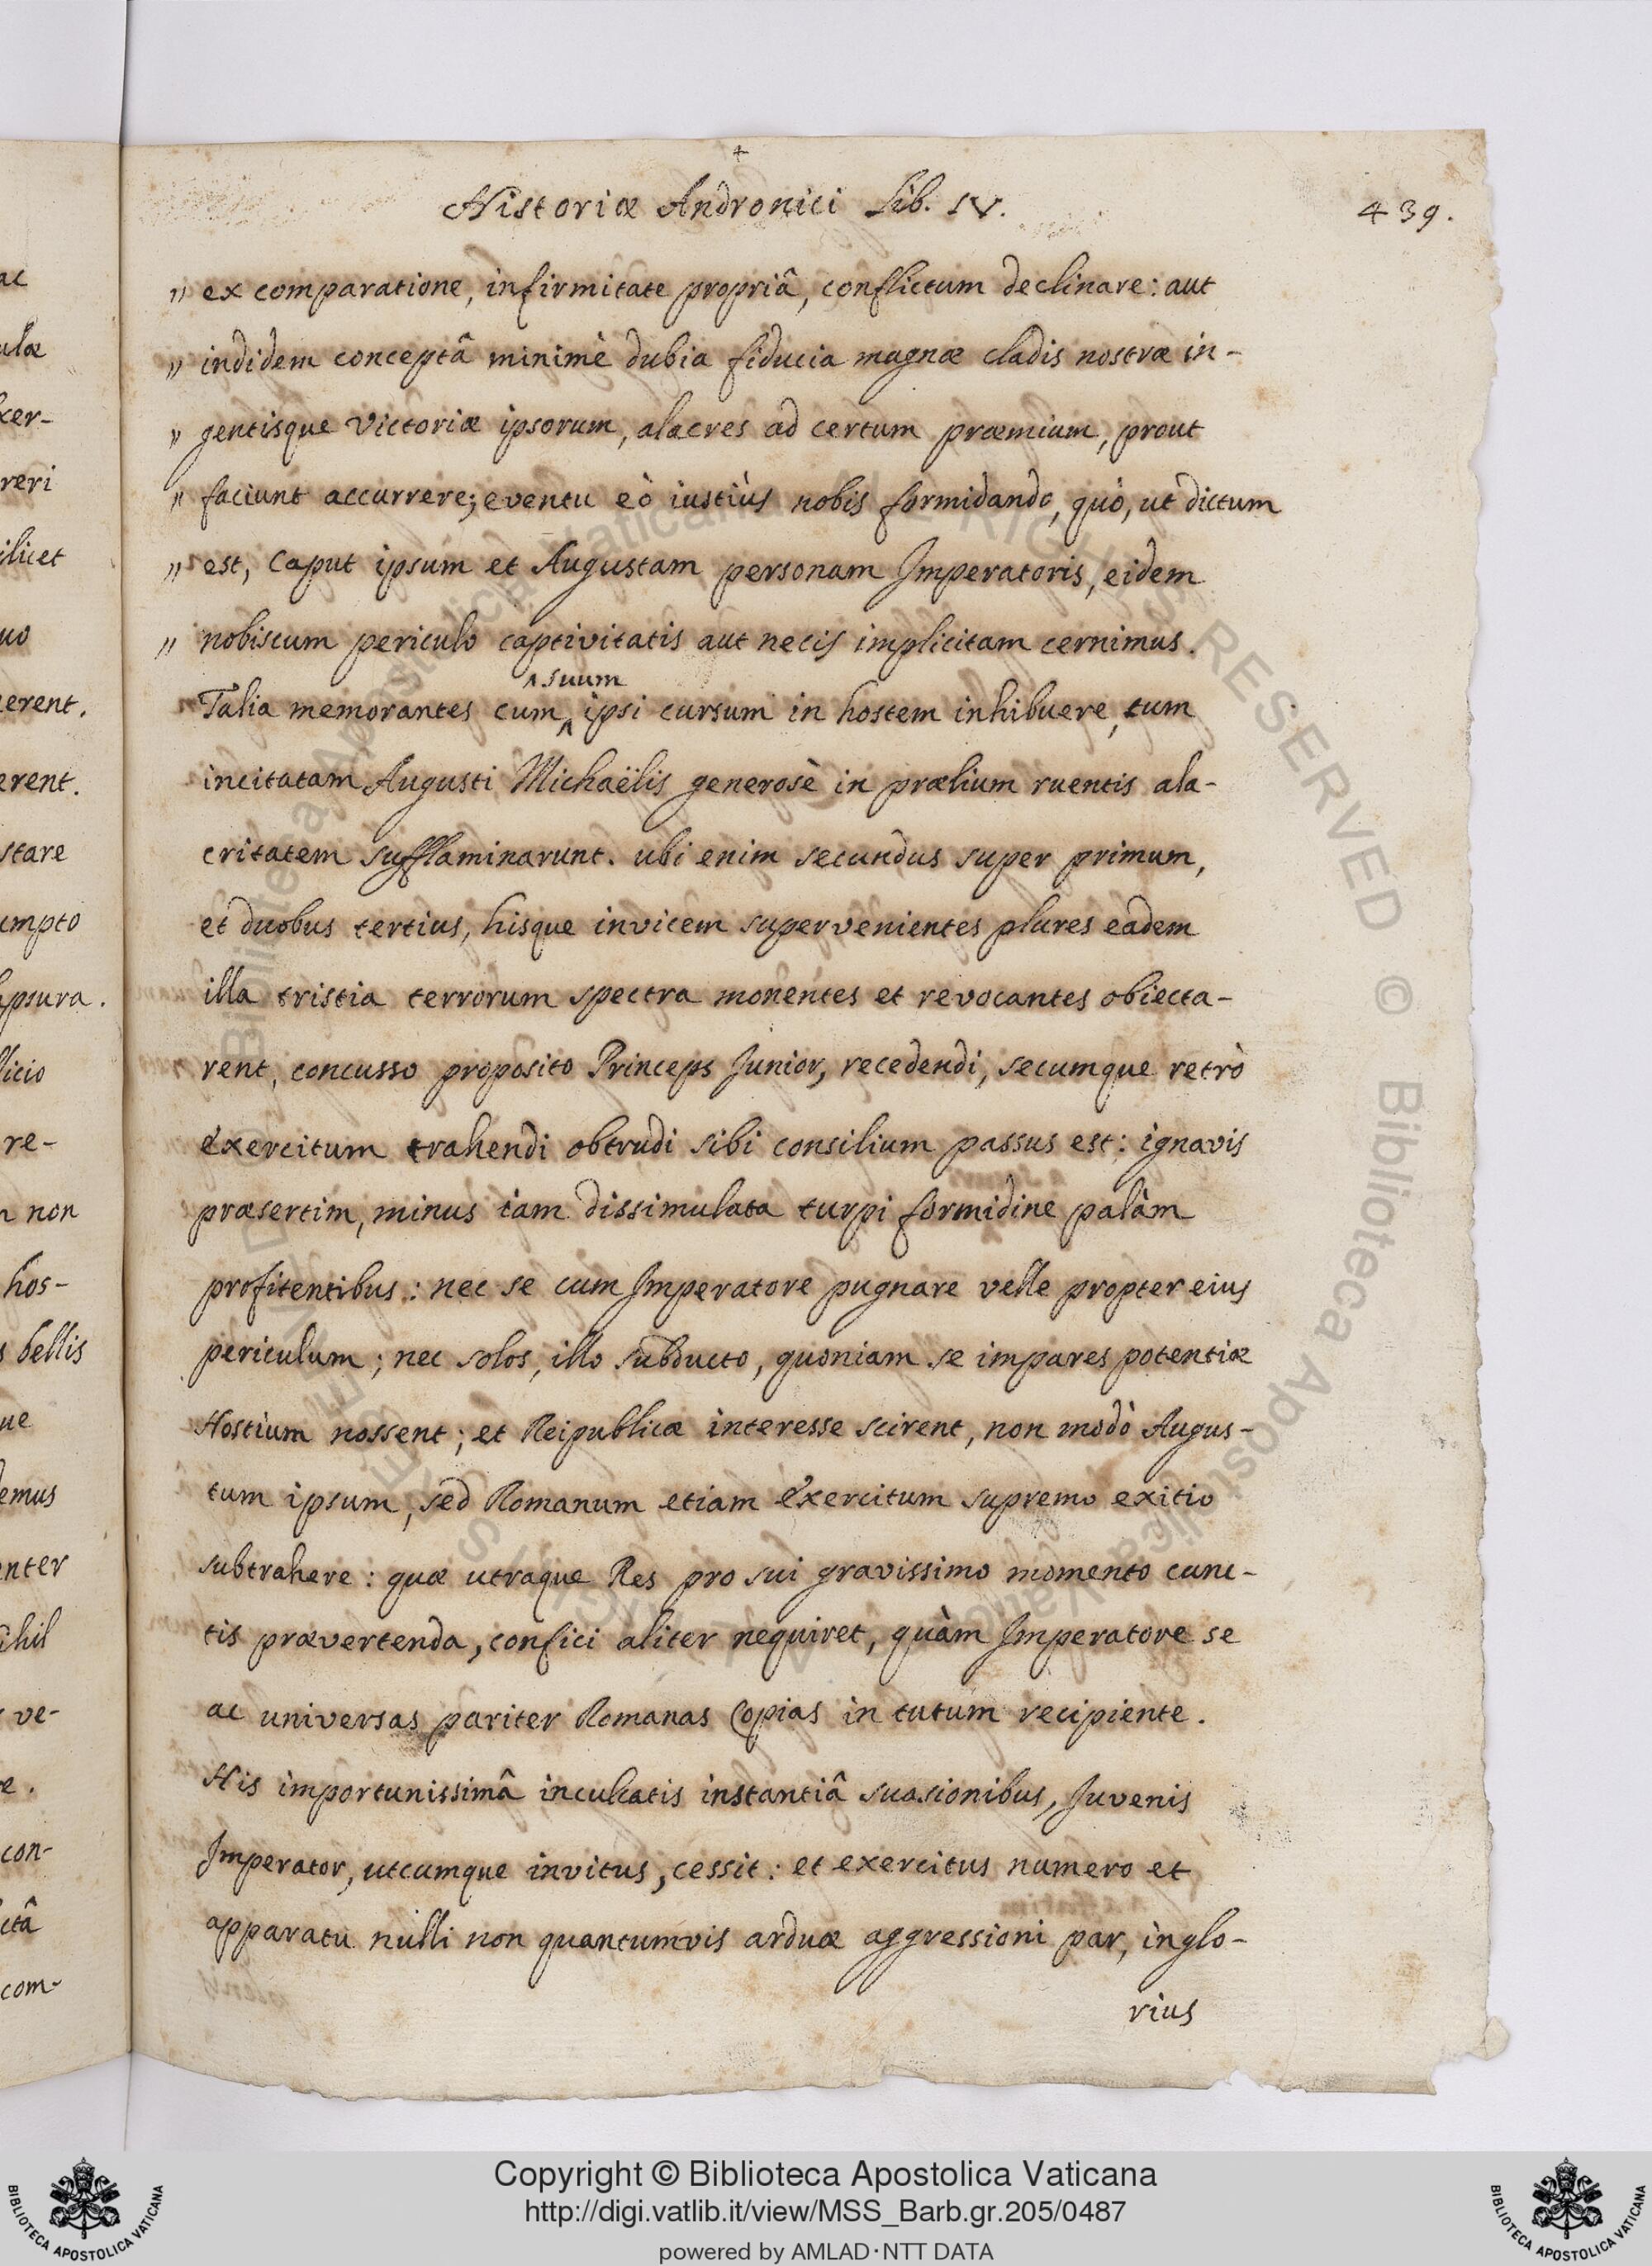 Historiæ Andronici Lib. IV.
439.
„ ex comparatione, infirmitate propriâ, conflictum declinare: aut
„ indidem conceptâ minimè dubia fiducia magnæ cladis nostræ in-
„ gentisque Victoriæ ipsorum, alacres ad certum præmium, prout
„ faciunt accurrere; eventu eò iustiùs nobis formidando, quò, ut dictum
„ est, Caput ipsum et Augustam personam Imperatoris, eidem
„ nobiscum periculo captivitatis aut necis implicitam cernimus.
^ suum
Talia memorantes cum ^ ipsi cursum in hostem inhibuere, tum
incitatam Augusti Michaëlis generosè in prælium ruentis ala-
critatem sufflaminarunt. ubi enim secundus super primum,
et duobus tertius, hisque invicem supervenientes plures eadem
illa tristia terrorum spectra monentes et revocantes obiecta-
rent, concusso proposito Princeps Junior, recedendi, secumque retrò
exercitum trahendi obtrudi sibi consilium passus est: ignavis
præsertim, minus iam dissimulata turpi formidine palàm
profitentibus: nec se cum Imperatore pugnare velle propter eius
periculum; nec solos, illo subducto, quoniam se impares potentiæ
Hostium nossent; et Reipublicæ interesse scirent, non modò Augus-
tum ipsum, sed Romanum etiam exercitum supremo exitio
subtrahere: quæ utraque Res pro sui gravissimo momento cunc-
tis prævertenda, confici aliter nequiret, quàm Imperatore se
ac universas pariter Romanas Copias in tutum recipiente.
His importunissimâ inculcatis instantiâ suasionibus, Juvenis
Imperator, utcumque invitus, cessit: et exercitus numero et
apparatu nulli non quantumvis arduæ aggressioni par, inglo-
rius
ac
ulæ
xer-
reri
ilicet
uo
erent.
erent.
stare
umpto
psura.
licio
re-
n non
hos-
s bellis
ue
emus
nter
ihil
ve-
e.
con-
itâ
com-
Copyright © Biblioteca Apostolica Vaticana
http://digi.vatlib.it/view/MSS_Barb.gr.205/0487
powered by AMLAD·NTT DATA
BIBLIOTECA APOSTOLICA VATICANA
BIBLIOTECA APOSTOLICA VATICANA